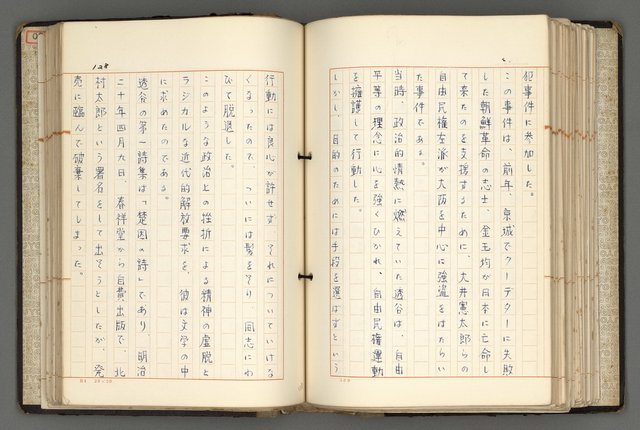 犯事件に参加した。
この事件は、前年、京城でクーデターに失敗
した朝鮮革命の志士、金玉均が日本に亡命し
て来たのを支援するために、大井憲太郎らの
自由民権左派が大阪を中心に強盗をはたらい
た事件である。
当時、政治的情熱に燃えていた透谷は、自由
平等の理念に心を強くひかれ、自由民権運動
を擁護して行動した。
しかし、目的のためには手段を選ばずという
128
行動には良心が許せず、それについていけな
くなったので、ついには髪をそり、同志にわ
びて脱退した。
このような政治上の挫折による精神の虚脱と
ラジカルな近代的解放要求を、彼は文学の中
に求めたのである。
透谷の第一詩集は「楚囚の詩」であり、明治
二十年四月九日、春祥堂から自費出版で、北
村太郎という署名をして出そうとしたが、発
売に臨んで破棄してしまった。
B4 20×20